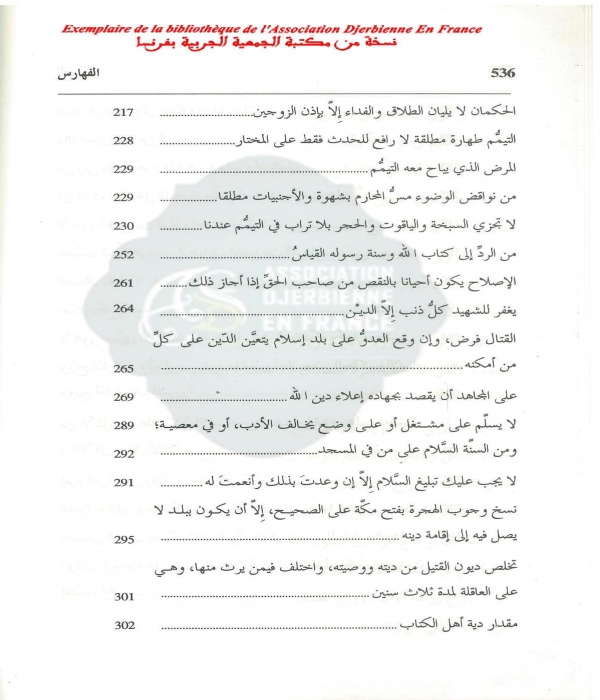 Exemplaire de la bibliothèque de l'Association Djerbienne En France
نسخة من مكتبة الجمعية الجربية بفرنسا
536 الفهارس
الحكمان لا يليان الطلاق والفداء إلاَّ بإذن الزوجين ..................... 217
التيمُّم طهارة مطلقة لا رافع للحدث فقط على المختار ..................... 228
المرض الذي يباح معه التيمُّم ..................... 229
من نواقض الوضوء مسُّ المحارم بشهوة والأجنبيات مطلقا ..................... 229
لا تجزي السبخة والياقوت والحجر بلا تراب في التيمُّم عندنا ..................... 230
من الردِّ إلى كتاب الله وسنة رسوله القياسُ ..................... 252
الإصلاح يكون أحيانا بالنقص من صاحب الحقِّ إذا أجاز ذلك ..................... 261
يغفر للشهيد كلُّ ذنب إلاَّ الديـن ..................... 264
القتال فرض، وإن وقع العدوُّ على بلد إسلام يتعيَّن الدّين على كلِّ
من أمكنه ..................... 265
على المجاهد أن يقصد بجهاده إعلاء دين الله ..................... 269
لا يسلَّم على مشتغل أو على وضع يخالف الأدب، أو في معصية؛ 289
ومن السنَّة السَّلام على من في المسجد ..................... 292
لا يجب عليك تبليغ السَّلام إلاَّ إن وعدتَ بذلك وأنعمتَ له ..................... 291
نسخ وجوب الهجرة بفتح مكَّة على الصحيح، إلاَّ أن يكون ببلد لا
يصل فيه إلى إقامة دينه ..................... 295
تخلص ديون القتيل من ديته ووصيته، واختلف فيمن يرث منها، وهي
على العاقلة لمدة ثلاث سنين ..................... 301
مقدار دية أهل الكتاب ..................... 302
ASSOCIATION
DJERBIENNE
EN FRANCE